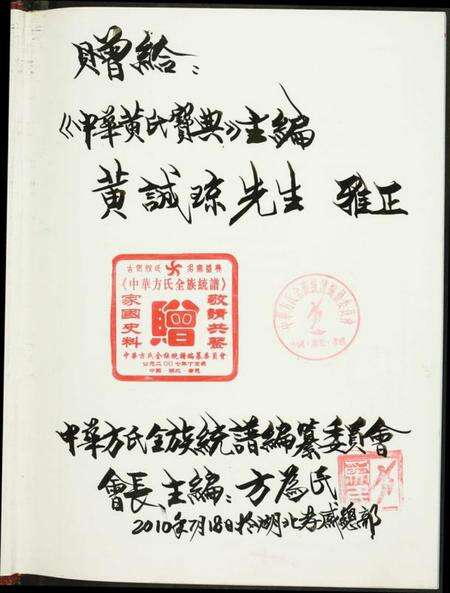 贈給：
《中華黄氏寶典》主編
黄誠琼先生 雅正
《中華方氏全族統譜》
家國史料
贈
敬請共鑒
中華方氏全族統譜編纂委員會
公元二〇〇七年丁亥歲
中國·湖北·孝感
中華方氏全族統譜編纂委員會
會長主編：方為民
2010年7月18日於湖北孝感總部